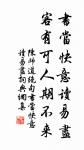 書當快意讀易盡
客有可人期不來
陳師道絕句書當快意
讀易盡詩詞典調集